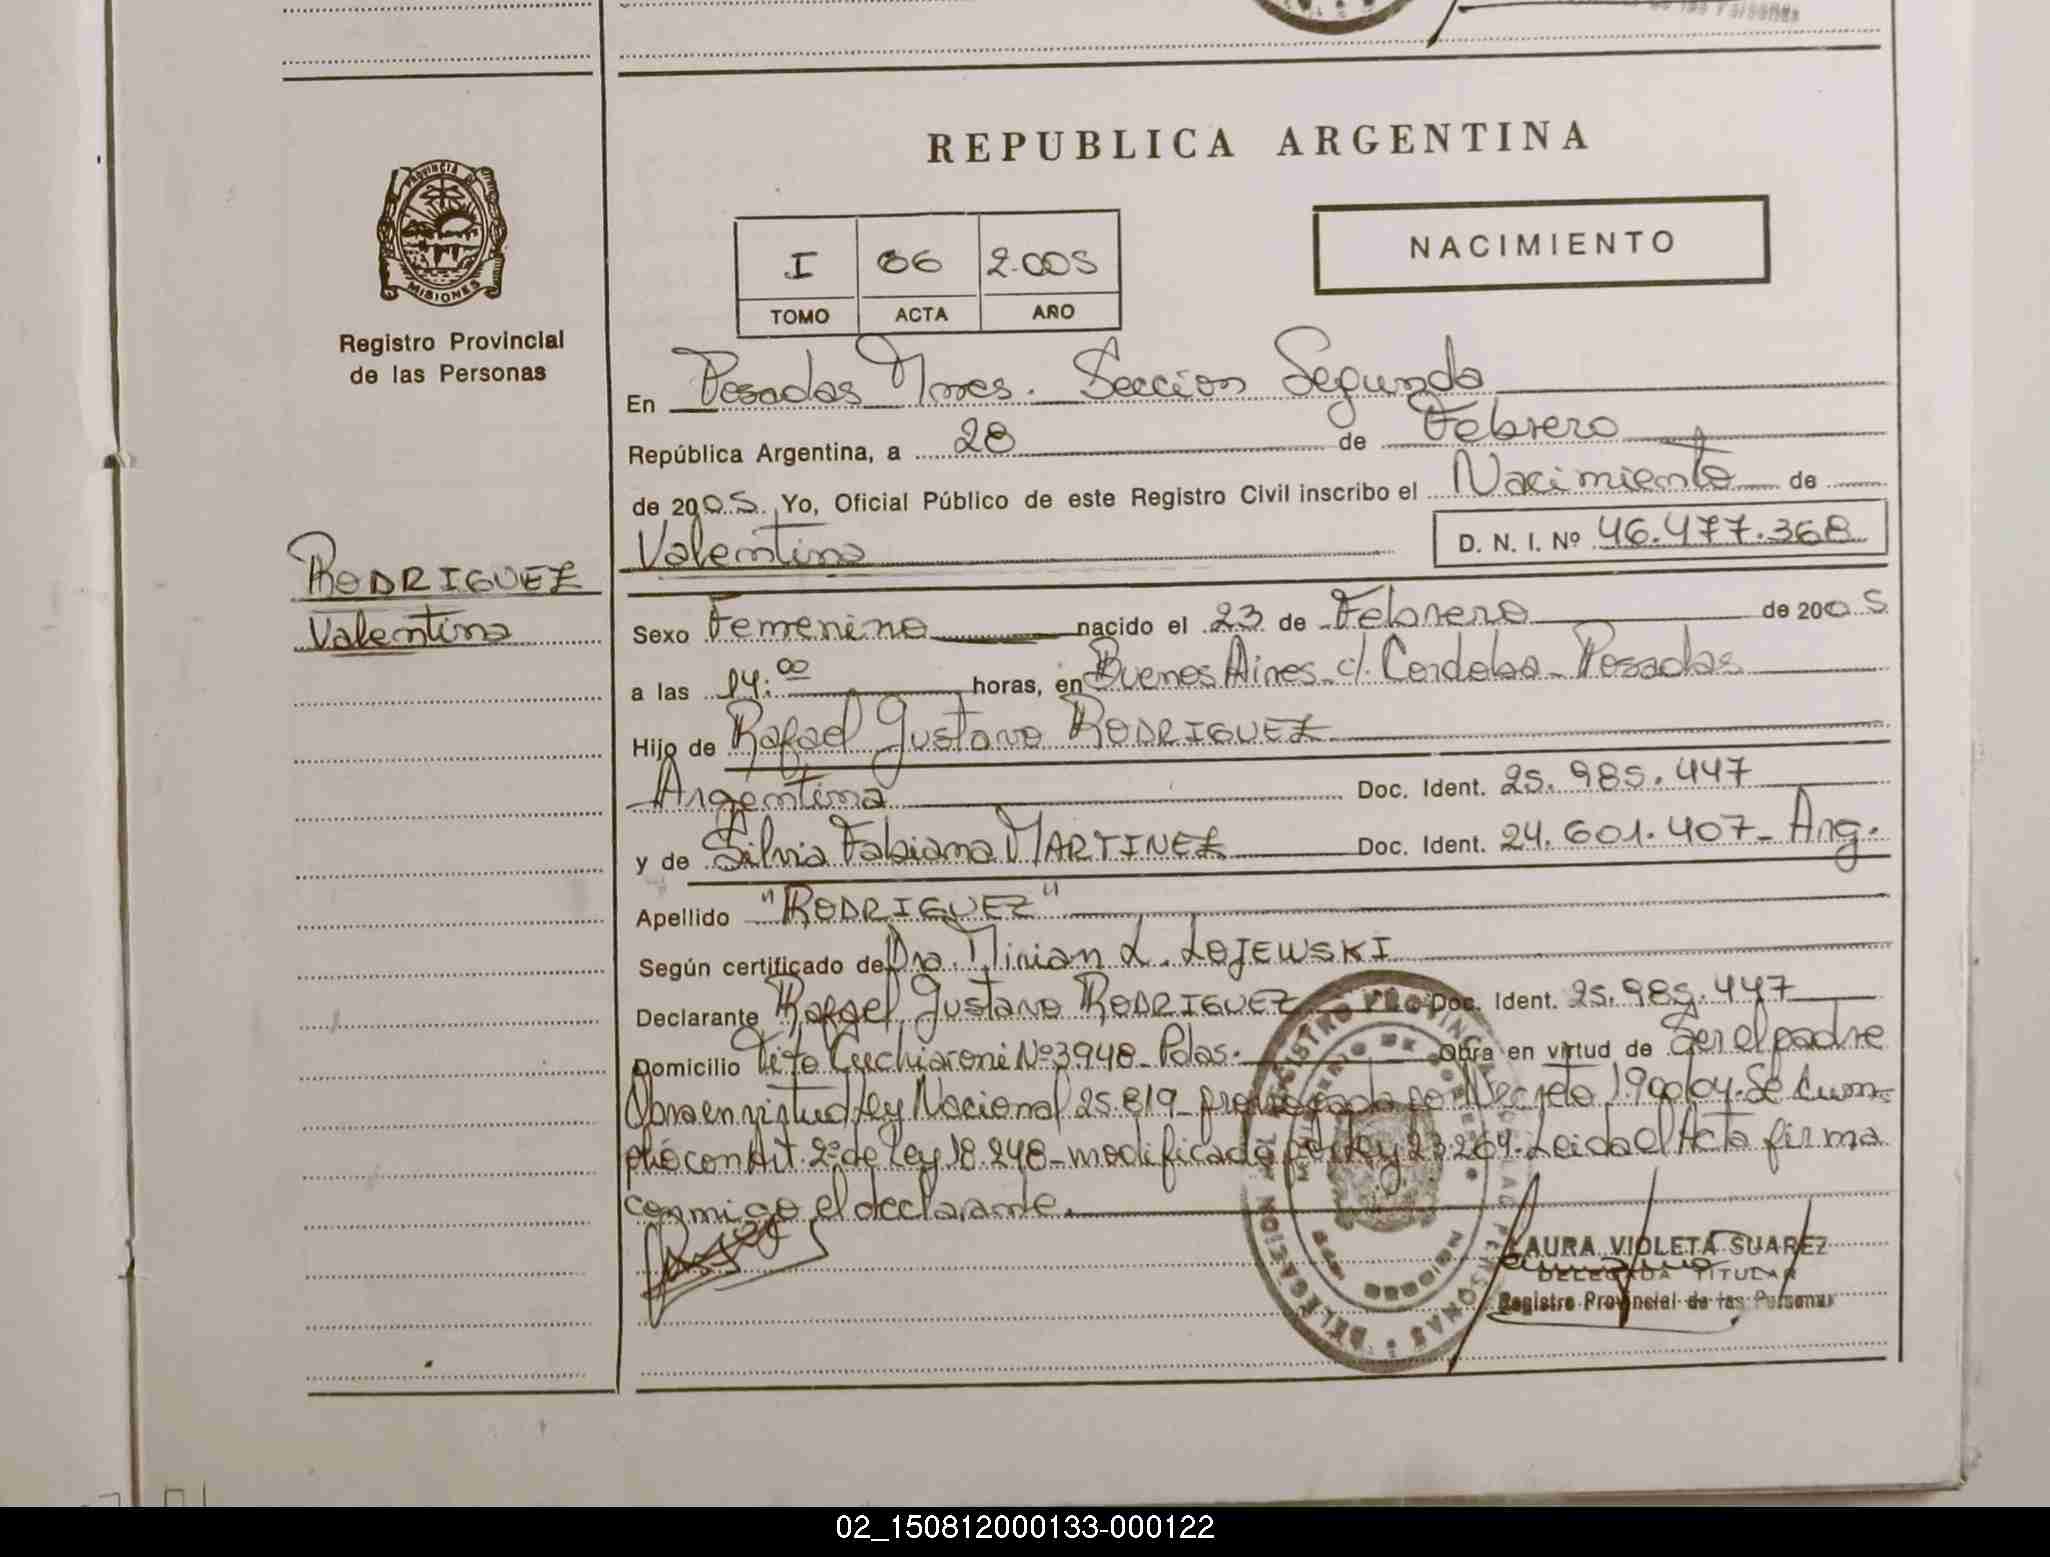 de las Personas
PROVINCIA DE
MISIONES
Registro Provincial
de las Personas
RODRIGUEZ
Valentina
REPUBLICA ARGENTINA
NACIMIENTO
I 66 2.005
TOMO ACTA AÑO
En Posadas Mnes. Seccion Segunda
República Argentina, a 28 de Febrero
de 2005 Yo, Oficial Público de este Registro Civil inscribo el Nacimiento de
Valentina D. N. I. Nº 46.477.368
Sexo Femenino nacido el 23 de Febrero de 2005
a las 14:00 horas, en Buenos Aires c/ Cordoba - Posadas
Hijo de Rafael Gustavo RODRIGUEZ
Argentina Doc. Ident. 25.985.447
y de Silvia Fabiana MARTINEZ Doc. Ident. 24.601.407- Arg.
Apellido "RODRIGUEZ"
Según certificado de Dra. Mirian L. LOJEWSKI
Declarante Rafael Gustavo RODRIGUEZ Doc. Ident. 25.985.447
Domicilio Tito Cuchiaroni Nº 3948 - Pdas. Obra en virtud de Ser el padre
Obra en virtud Ley Nacional 25.819 - prorrogada por Decreto 190/04. Se cum-
plió con Art. 2º de Ley 18.248 - modificada por Ley 23.264. Leida el Acta firma
conmigo el declarante.
LAURA VIOLETA SUAREZ
DELEGADA TITULAR
Registro Provincial de las Personas
02_150812000133-000122